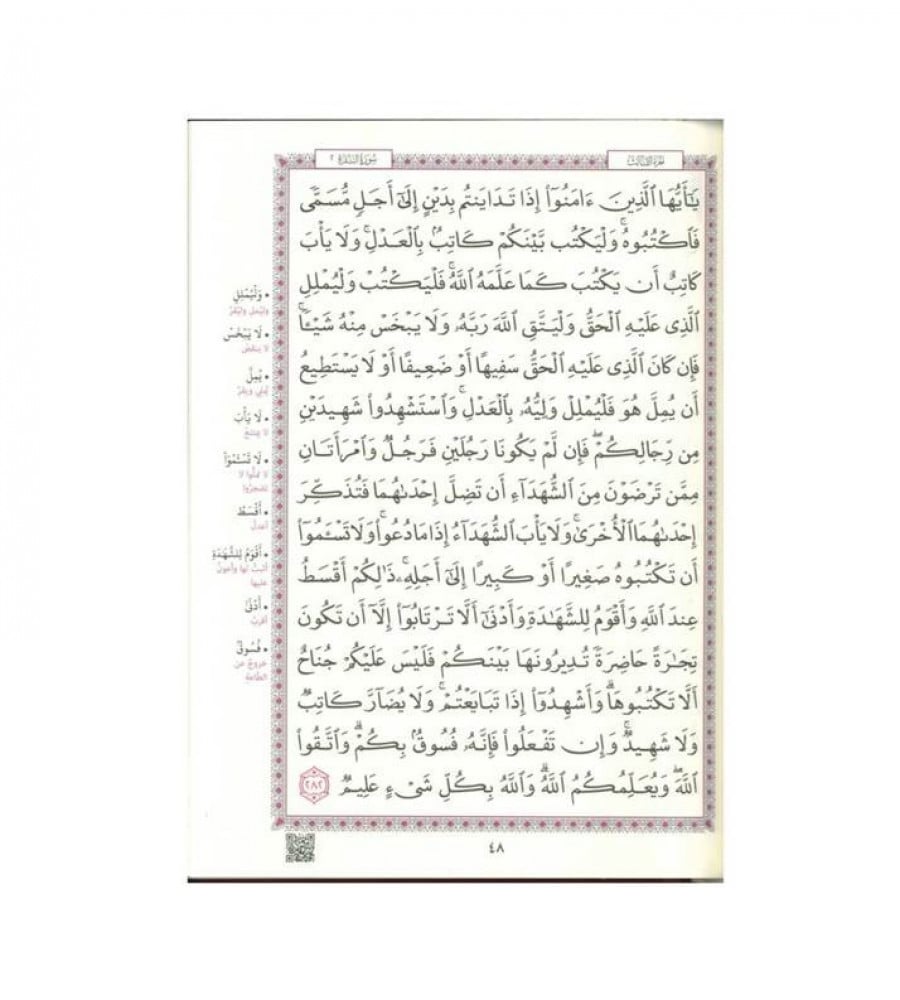 الجزء الثالث
سورة البقرة ٢
يَٰٓأَيُّهَا ٱلَّذِينَ ءَامَنُوٓا۟ إِذَا تَدَايَنتُم بِدَيْنٍ إِلَىٰٓ أَجَلٍ مُّسَمًّى
فَٱكْتُبُوهُ ۚ وَلْيَكْتُب بَّيْنَكُمْ كَاتِبٌۢ بِٱلْعَدْلِ ۚ وَلَا يَأْبَ
كَاتِبٌ أَن يَكْتُبَ كَمَا عَلَّمَهُ ٱللَّهُ ۚ فَلْيَكْتُبْ وَلْيُمْلِلِ
ٱلَّذِى عَلَيْهِ ٱلْحَقُّ وَلْيَتَّقِ ٱللَّهَ رَبَّهُۥ وَلَا يَبْخَسْ مِنْهُ شَيْـًٔا ۚ
فَإِن كَانَ ٱلَّذِى عَلَيْهِ ٱلْحَقُّ سَفِيهًا أَوْ ضَعِيفًا أَوْ لَا يَسْتَطِيعُ
أَن يُمِلَّ هُوَ فَلْيُمْلِلْ وَلِيُّهُۥ بِٱلْعَدْلِ ۚ وَٱسْتَشْهِدُوا۟ شَهِيدَيْنِ
مِن رِّجَالِكُمْ ۖ فَإِن لَّمْ يَكُونَا رَجُلَيْنِ فَرَجُلٌ وَٱمْرَأَتَانِ
مِمَّن تَرْضَوْنَ مِنَ ٱلشُّهَدَآءِ أَن تَضِلَّ إِحْدَىٰهُمَا فَتُذَكِّرَ
إِحْدَىٰهُمَا ٱلْأُخْرَىٰ ۚ وَلَا يَأْبَ ٱلشُّهَدَآءُ إِذَا مَا دُعُوا۟ ۚ وَلَا تَسْـَٔمُوٓا۟
أَن تَكْتُبُوهُ صَغِيرًا أَوْ كَبِيرًا إِلَىٰٓ أَجَلِهِۦ ۚ ذَٰلِكُمْ أَقْسَطُ
عِندَ ٱللَّهِ وَأَقْوَمُ لِلشَّهَٰدَةِ وَأَدْنَىٰٓ أَلَّا تَرْتَابُوٓا۟ ۖ إِلَّآ أَن تَكُونَ
تِجَٰرَةً حَاضِرَةً تُدِيرُونَهَا بَيْنَكُمْ فَلَيْسَ عَلَيْكُمْ جُنَاحٌ
أَلَّا تَكْتُبُوهَا ۗ وَأَشْهِدُوٓا۟ إِذَا تَبَايَعْتُمْ ۚ وَلَا يُضَآرَّ كَاتِبٌ
وَلَا شَهِيدٌ ۚ وَإِن تَفْعَلُوا۟ فَإِنَّهُۥ فُسُوقٌۢ بِكُمْ ۗ وَٱتَّقُوا۟
ٱللَّهَ ۖ وَيُعَلِّمُكُمُ ٱللَّهُ ۗ وَٱللَّهُ بِكُلِّ شَىْءٍ عَلِيمٌ ٢٨٢
• وَلْيُمْلِلِ
وليُملِ وليُقرّ
• لَا يَبْخَسْ
لا ينقص
• يُمِلَّ
يُملي ويقرّ
• لَا يَأْبَ
لا يمتنع
• لَا تَسْـَٔمُوٓا۟
لا تملّوا لا
تضجروا
• أَقْسَطُ
أعدل
• أَقْوَمُ لِلشَّهَٰدَةِ
أثبت لها وأعون
عليها
• أَدْنَىٰٓ
أقرب
• فُسُوقٌۢ
خروج عن
الطاعة
٤٨